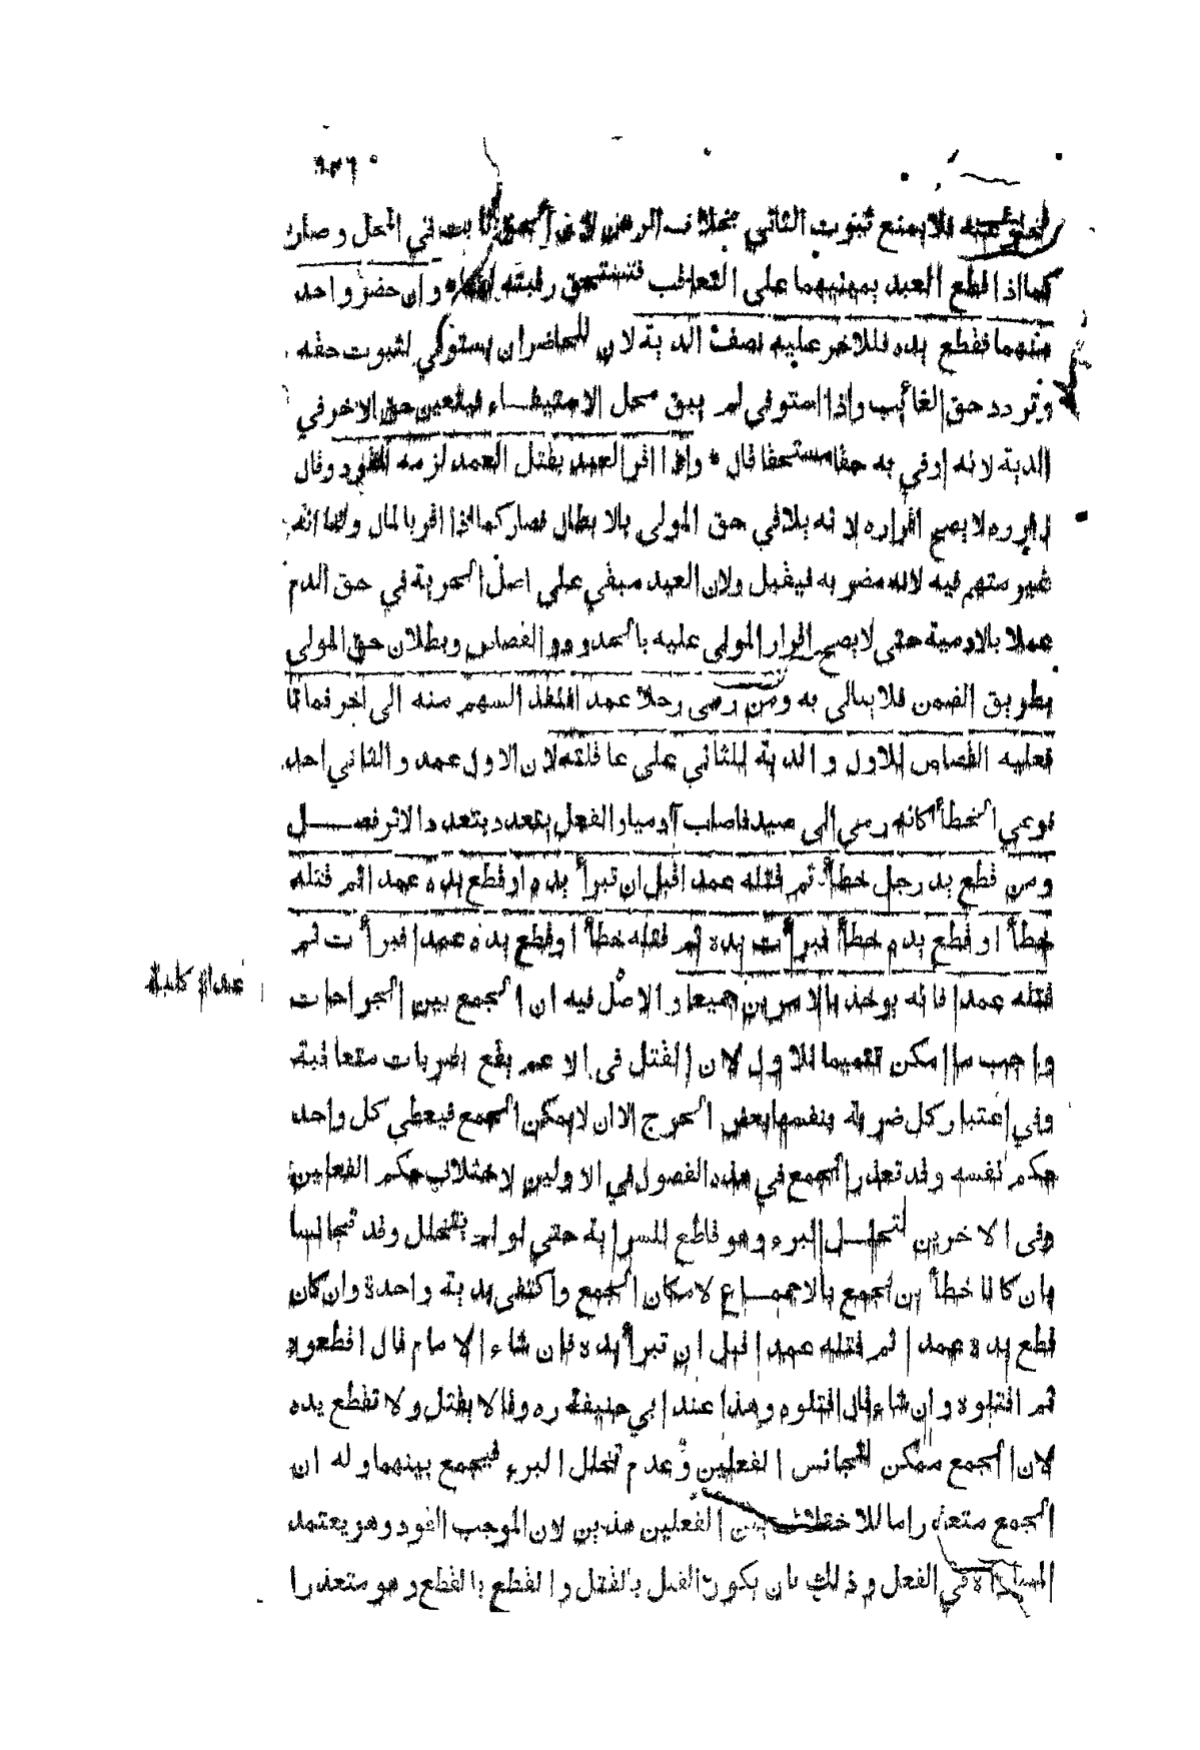 لخلوه عنه فلا يمنع ثبوت الثاني بخلاف الرهن لان الحق ثابت في المحل وصار
كما اذا قطع العبد يمينيهما على التعاقب فتستحق رقبته لهما * وان حضر واحد
منهما فقطع يده فللاخر عليه نصف الدية لان للحاضر ان يستوفي لثبوت حقه
وتردد حق الغائب واذا استوفى لم يبق محل الاستيفاء فيتعين حق الاخر في
الدية لانه اوفي به حقا مستحقا قال * واذا اقر العبد بقتل العمد لزمه القود وقال
زفر ره لا يصح اقراره لانه يلاقي حق المولى بالابطال فصار كما اذا اقر بالمال ولنا انه
غير متهم فيه لانه مضر به فيقبل ولان العبد مبقي على اصل الحرية في حق الدم
عملا بالادمية حتى لا يصح اقرار المولى عليه بالحدود والقصاص وبطلان حق المولى
بطريق الضمن فلا يبالى به ومن رمى رجلا عمدا فنفذ السهم منه الى اخر فماتا
فعليه القصاص للاول والدية للثاني على عاقلته لان الاول عمد والثاني احد
نوعي الخطأ كانه رمى الى صيد فاصاب آدميا والفعل يتعدد بتعدد الاثر فصــل
ومن قطع يد رجل خطأ ثم قتله عمدا قبل ان تبرأ يده او قطع يده عمدا ثم قتله
خطأ او قطع يده خطأ فبرأت يده ثم قتله خطأ او قطع يده عمدا فبرأت ثم
قتله عمدا فانه يوخذ بالامرين جميعا والاصل فيه ان الجمع بين الجراحات
واجب ما امكن تتميما للاول لان القتل في الاعم يقع بضربات متعاقبة
وفي اعتبار كل ضربة بنفسها بعض الحرج الا ان لا يمكن الجمع فيعطي كل واحد
حكم نفسه وقد تعذر الجمع في هذه الفصول في الاولين لاختلاف حكم الفعلين
وفي الاخرين لتخلــل البرء وهو قاطع للسراية حتى لو لم يتخلل وقد تجانسا
بان كانا خطأين يجمع بالاجمــاع لامكان الجمع واكتفى بدية واحدة وان كان
قطع يده عمدا ثم قتله عمدا قبل ان تبرأ يده فان شاء الامام قال اقطعوه
ثم اقتلوه وان شاء قال اقتلوه وهذا عند ابي حنيفة ره وقالا يقتل ولا تقطع يده
لان الجمع ممكن لتجانس الفعلين وعدم تخلل البرء فيجمع بينهما وله ان
الجمع متعذر اما للاختلاف بين الفعلين هذين لان الموجب القود وهو يعتمد
المساواة في الفعل وذلك بان يكون القتل بالقتل والقطع بالقطع وهو متعذر ا